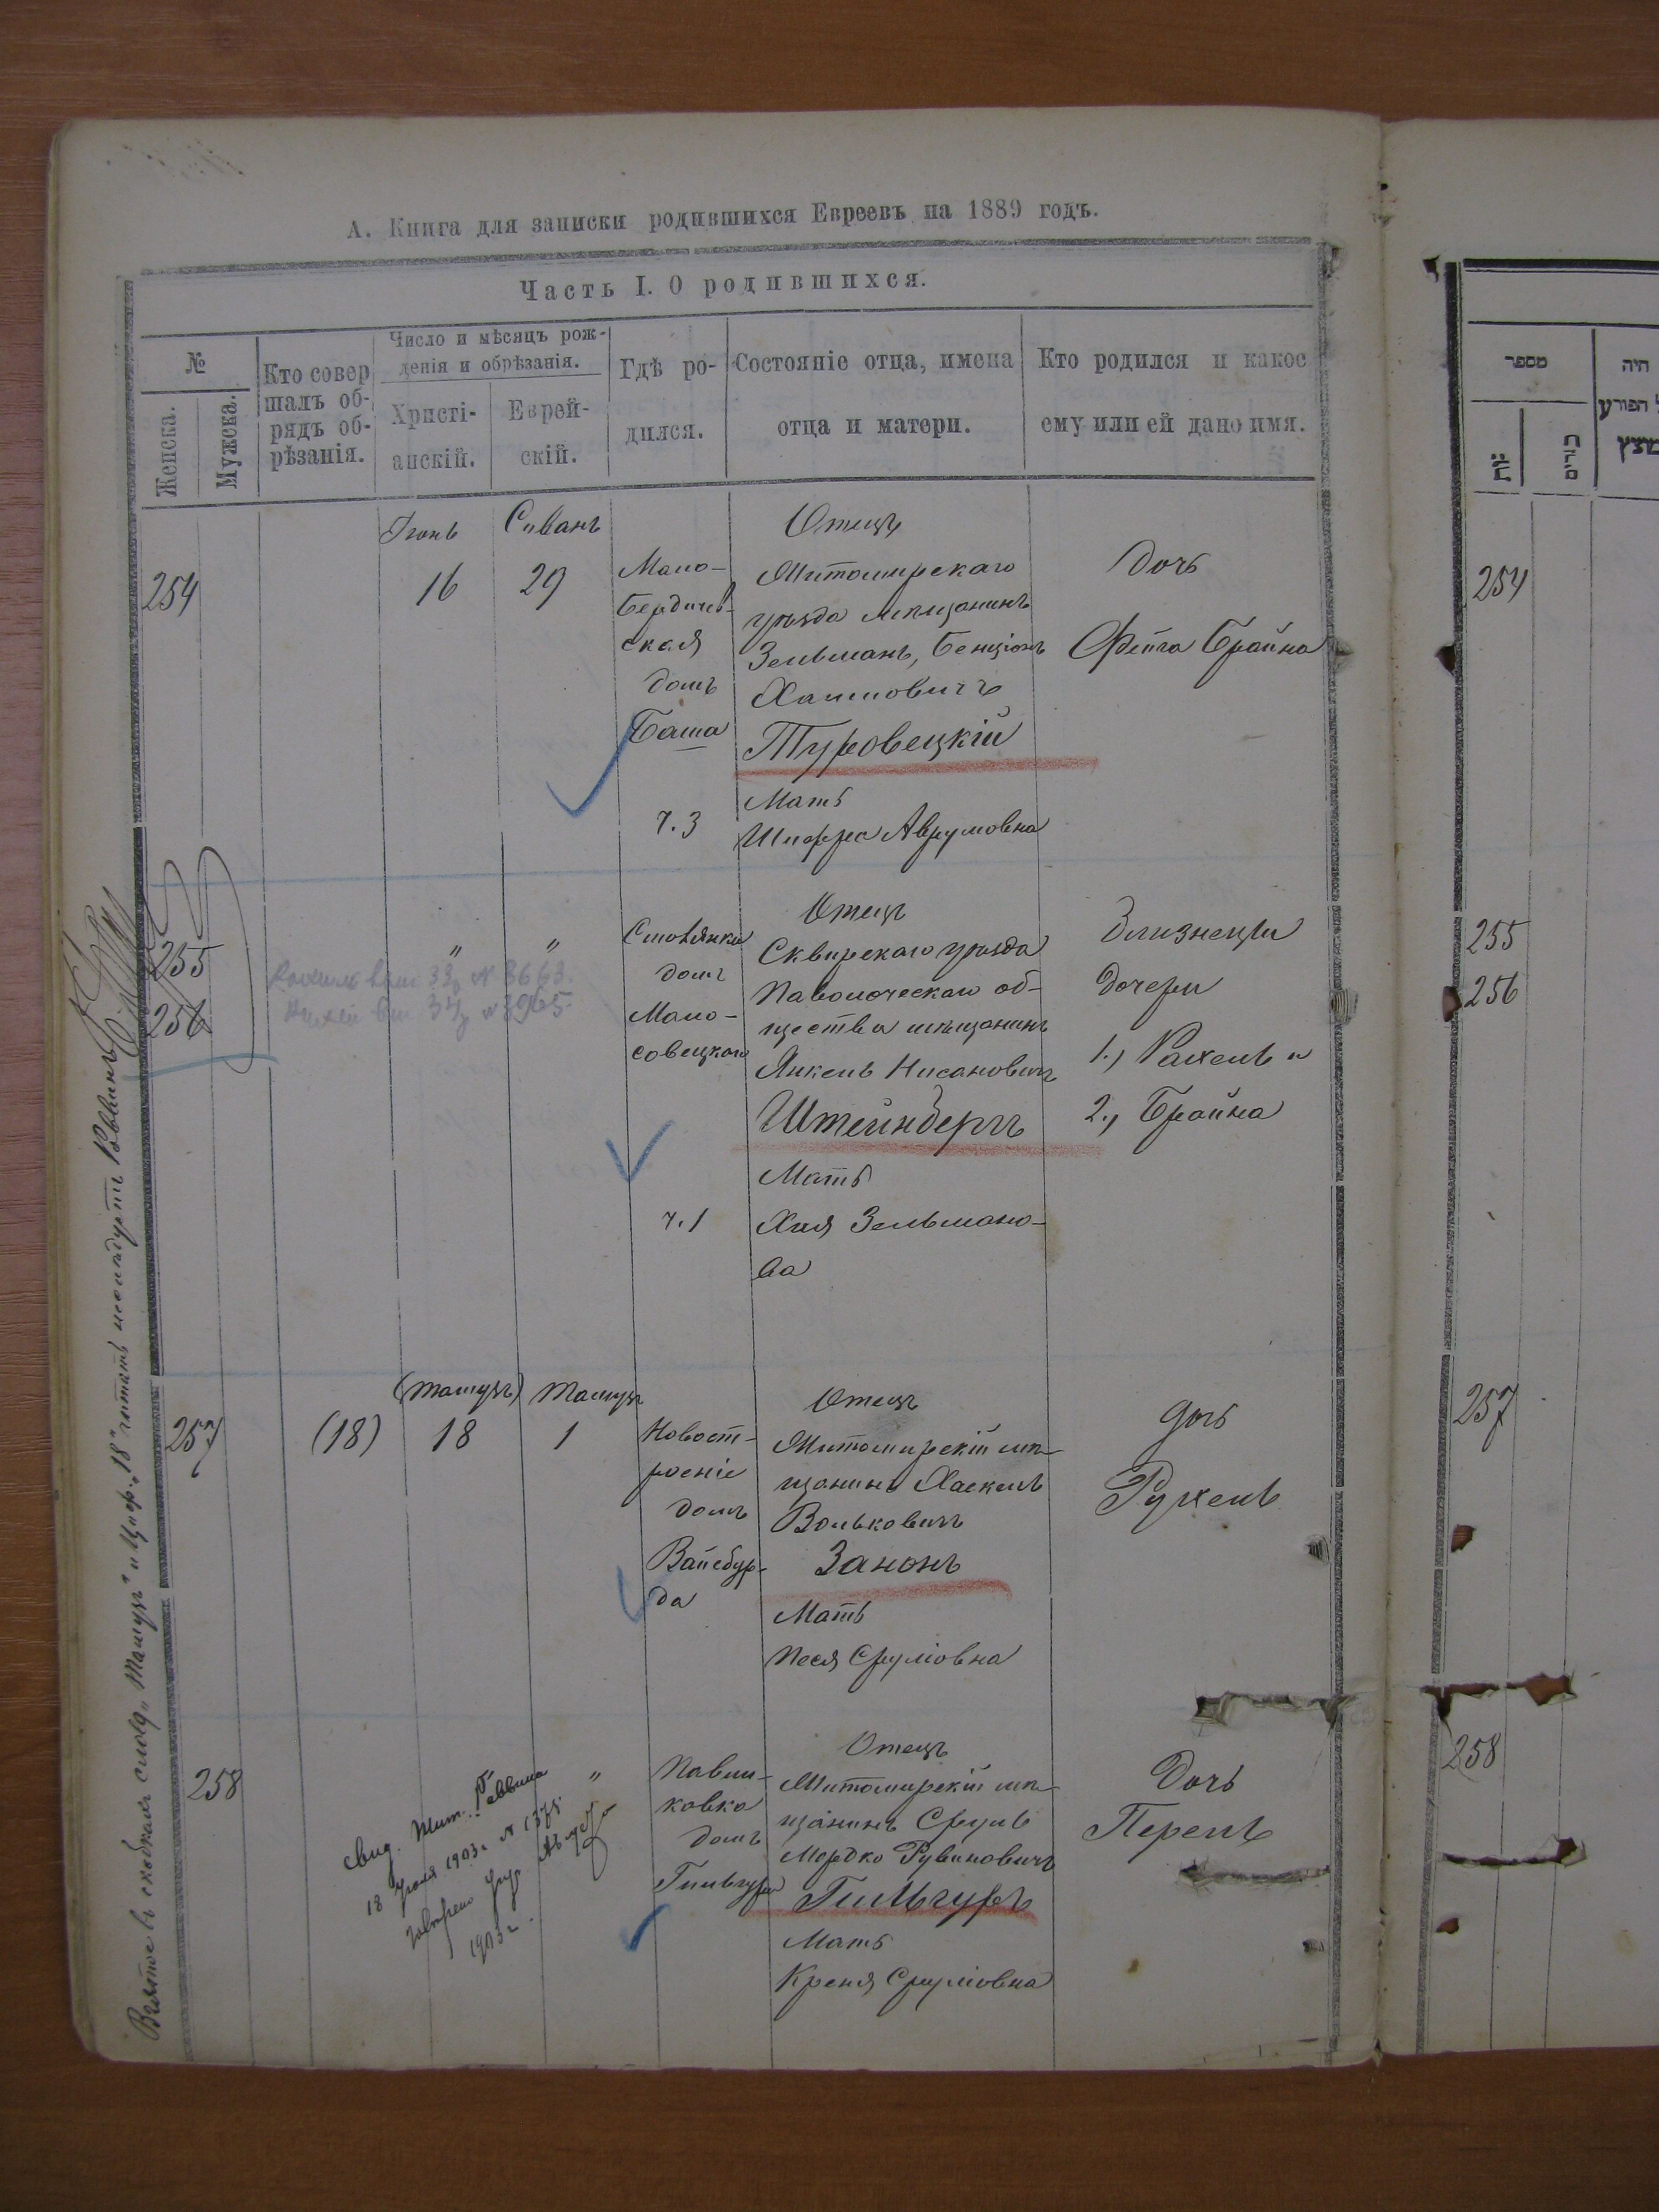 А. Книга для записки родившихся Евреевъ на 1889 годъ.
Часть I. О родившихся.
№
Женска.
Мужска.
Кто совер
шалъ об-
рядъ об-
рѣзанія.
Число и мѣсяцъ рож-
денія и обрѣзанія.
Христі-
анскій.
Еврей-
скій.
Гдѣ ро-
дился.
Состояніе отца, имена
отца и матери.
Кто родился и какое
ему или ей дано имя.
254
Іюнь
16
Сиванъ
29
Мало-
Бердичев-
ская
домъ
Баша
ч. 3
Отецъ
Житомирскаго
уѣзда мѣщанинъ
Зельманъ, Бенціонъ
Хаимовичъ
Туровецкій
Мать
Шифра Аврумовна
Дочь
Фейга Брайна
255
256
"
"
домъ
Мало-
совецкаго
ч. 1
Отецъ
Сквирскаго уѣзда
Паволочскаго об-
щества мѣщанинъ
Янкель Нисановичъ
Штейнбергъ
Мать
Хая Зельмано-
ва
Близнецы
дочери
1., Рахель и
2., Брайна
257
(18)
(Тамузъ)
18
Тамузъ
1
Новост-
роеніе
домъ
Вайсбур-
да
Отецъ
Житомирскій мѣ-
щанинъ Хаскель
Вольковичъ
Занонъ
Мать
Песя Сруліовна
Дочь
Рухель
258
Свид. Жит. Раввина
18 Іюля 1903 г. № 1375.
1903 г.
"
Павли-
ковка
домъ
Гильгура
Отецъ
Житомирскій мѣ-
щанинъ Сруль
Мордко Рувиновичъ
Гильгуръ
Мать
Креня Сруліовна
Дочь
Перель
Взятое въ скобкахъ слово „Тамузъ" и цыф. „18" читать Раввинъ
מספר
254
255
256
257
258